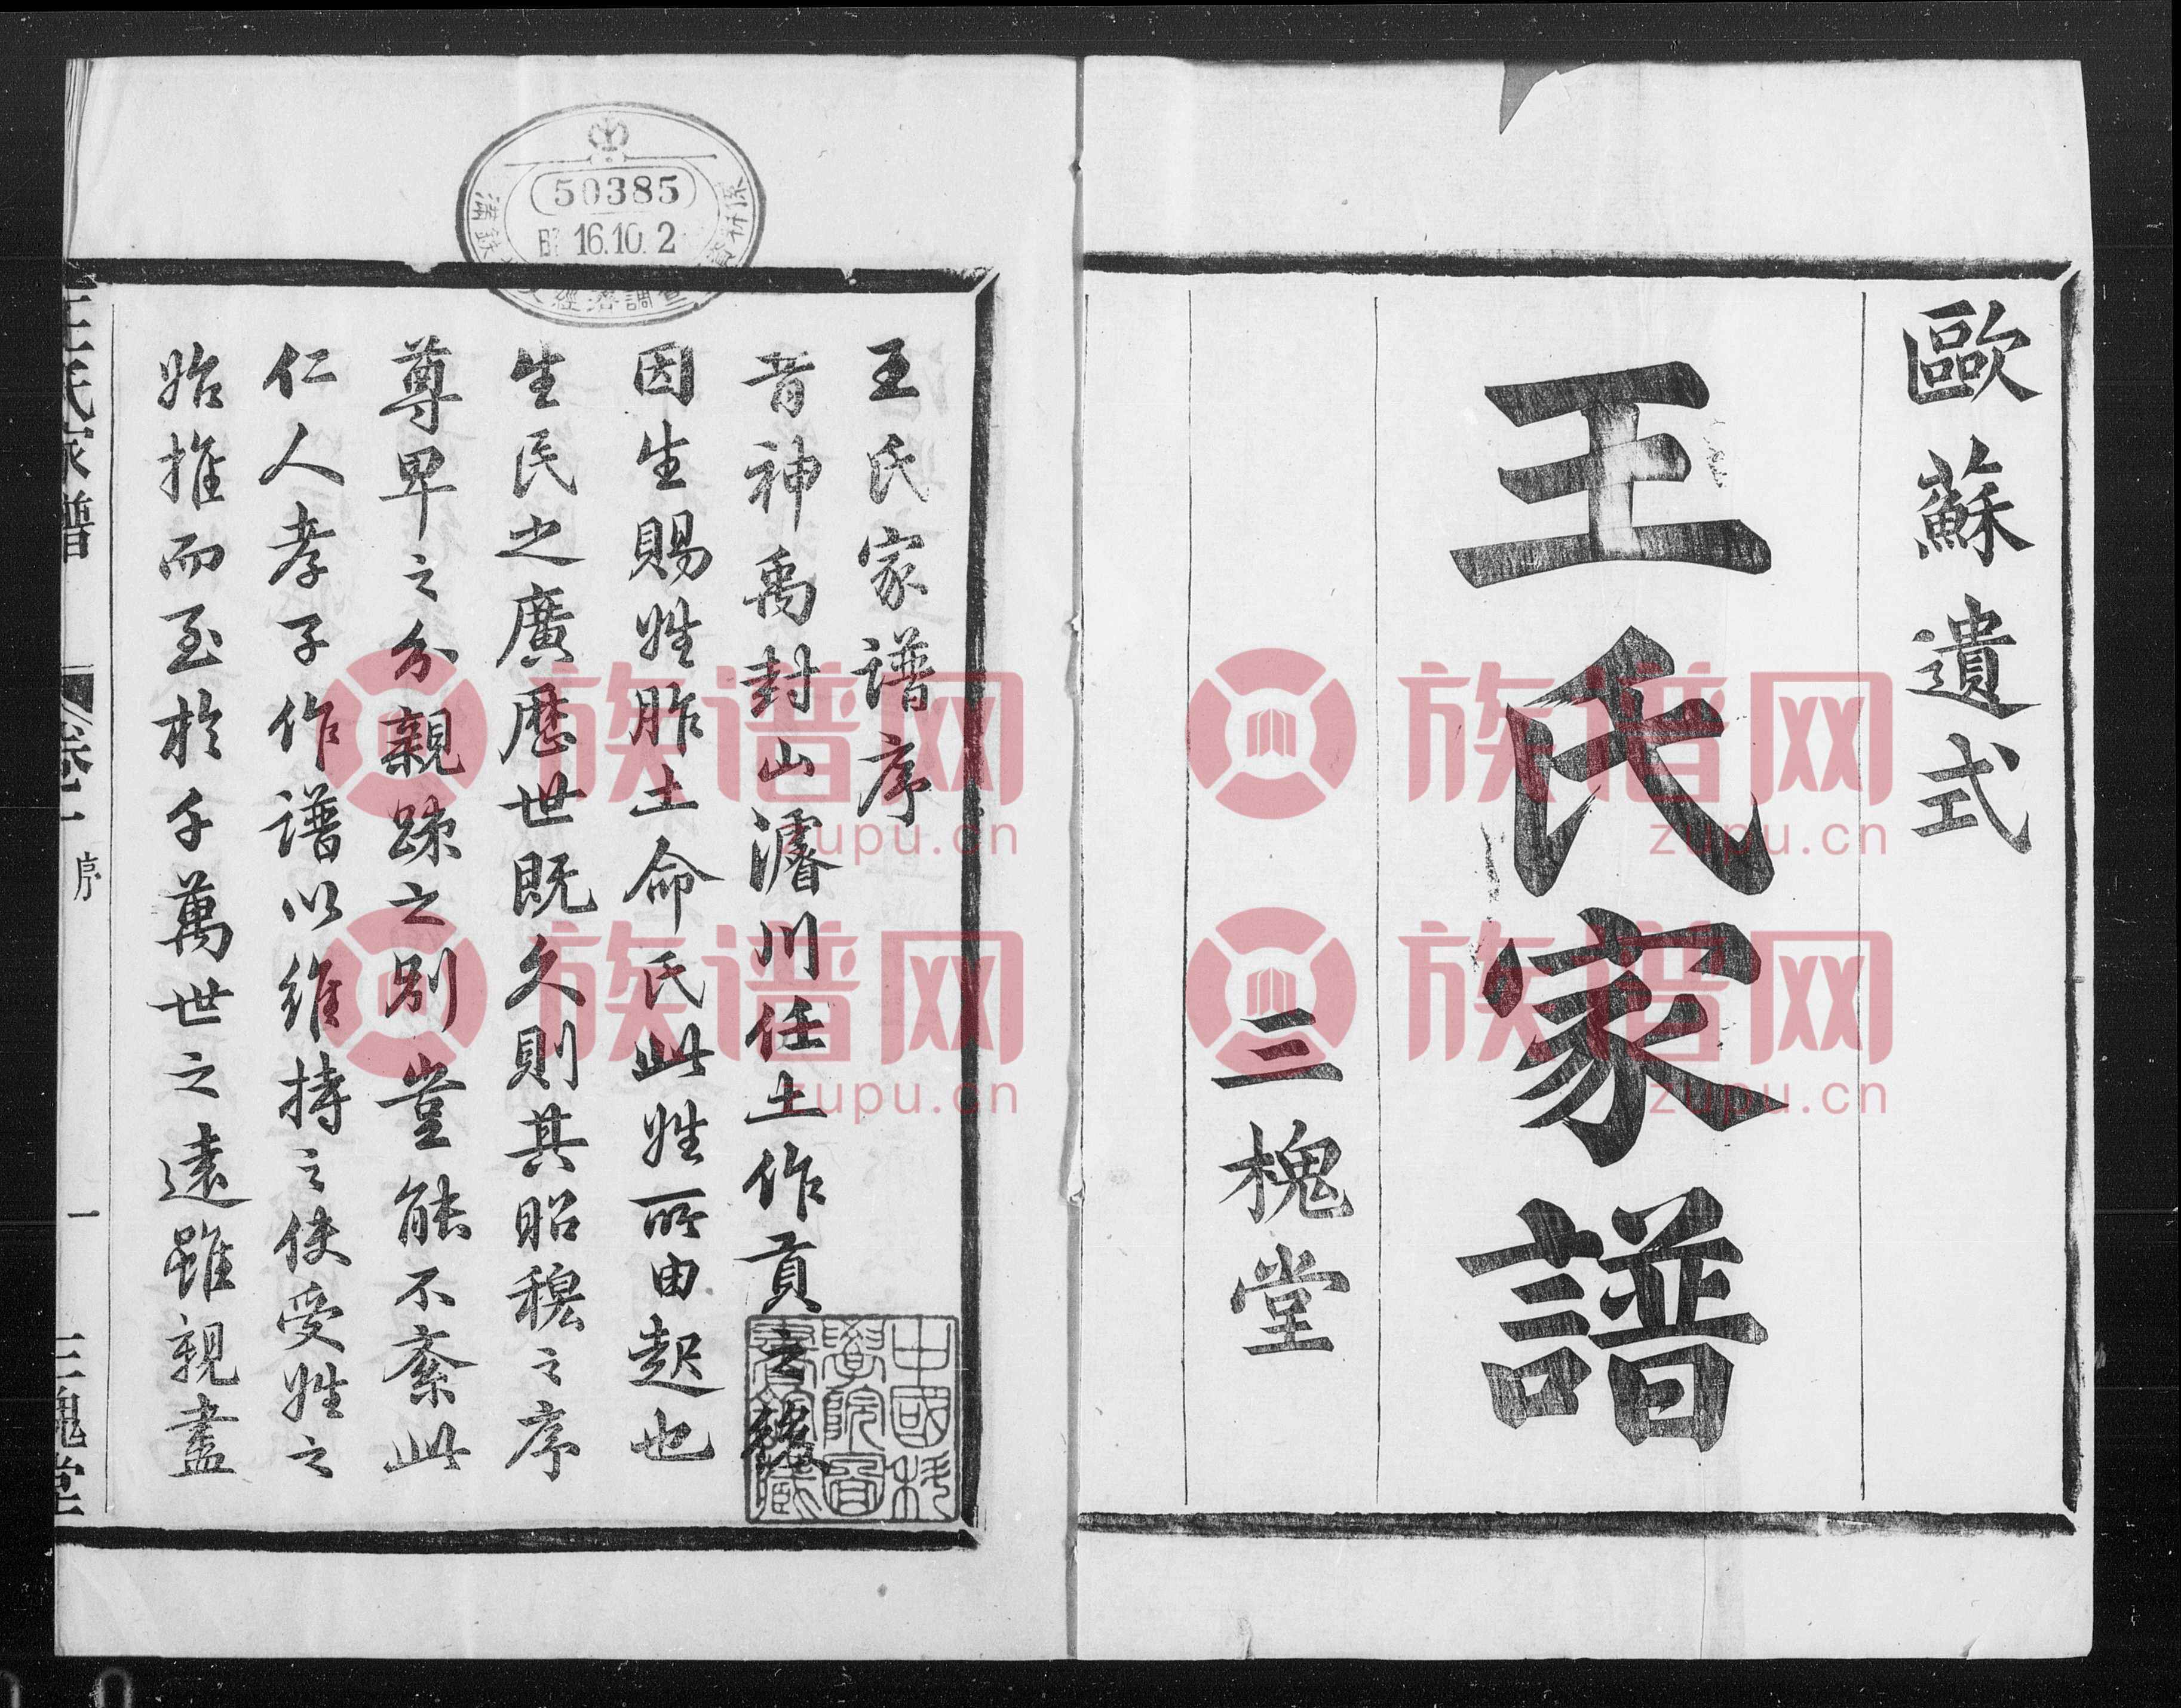 歐蘇遺式
王氏家譜
三槐堂
王氏家譜序
昔神禹封山濬川任土作貢之後
因生賜姓胙土命氏此姓所由起也
生民之廣歷世既久則其昭穆之序
尊卑之分親疎之別豈能不紊此
仁人孝子作譜以維持之使受姓之
始推而至於千萬世之遠雖親盡
王氏家譜 卷一 序 一 三槐堂
50385
昭 16.10.2
滿鐵
經濟調查
中國科
學院圖
書館藏
族谱网
zupu.cn
族谱网
zupu.cn
族谱网
zupu.cn
族谱网
zupu.cn